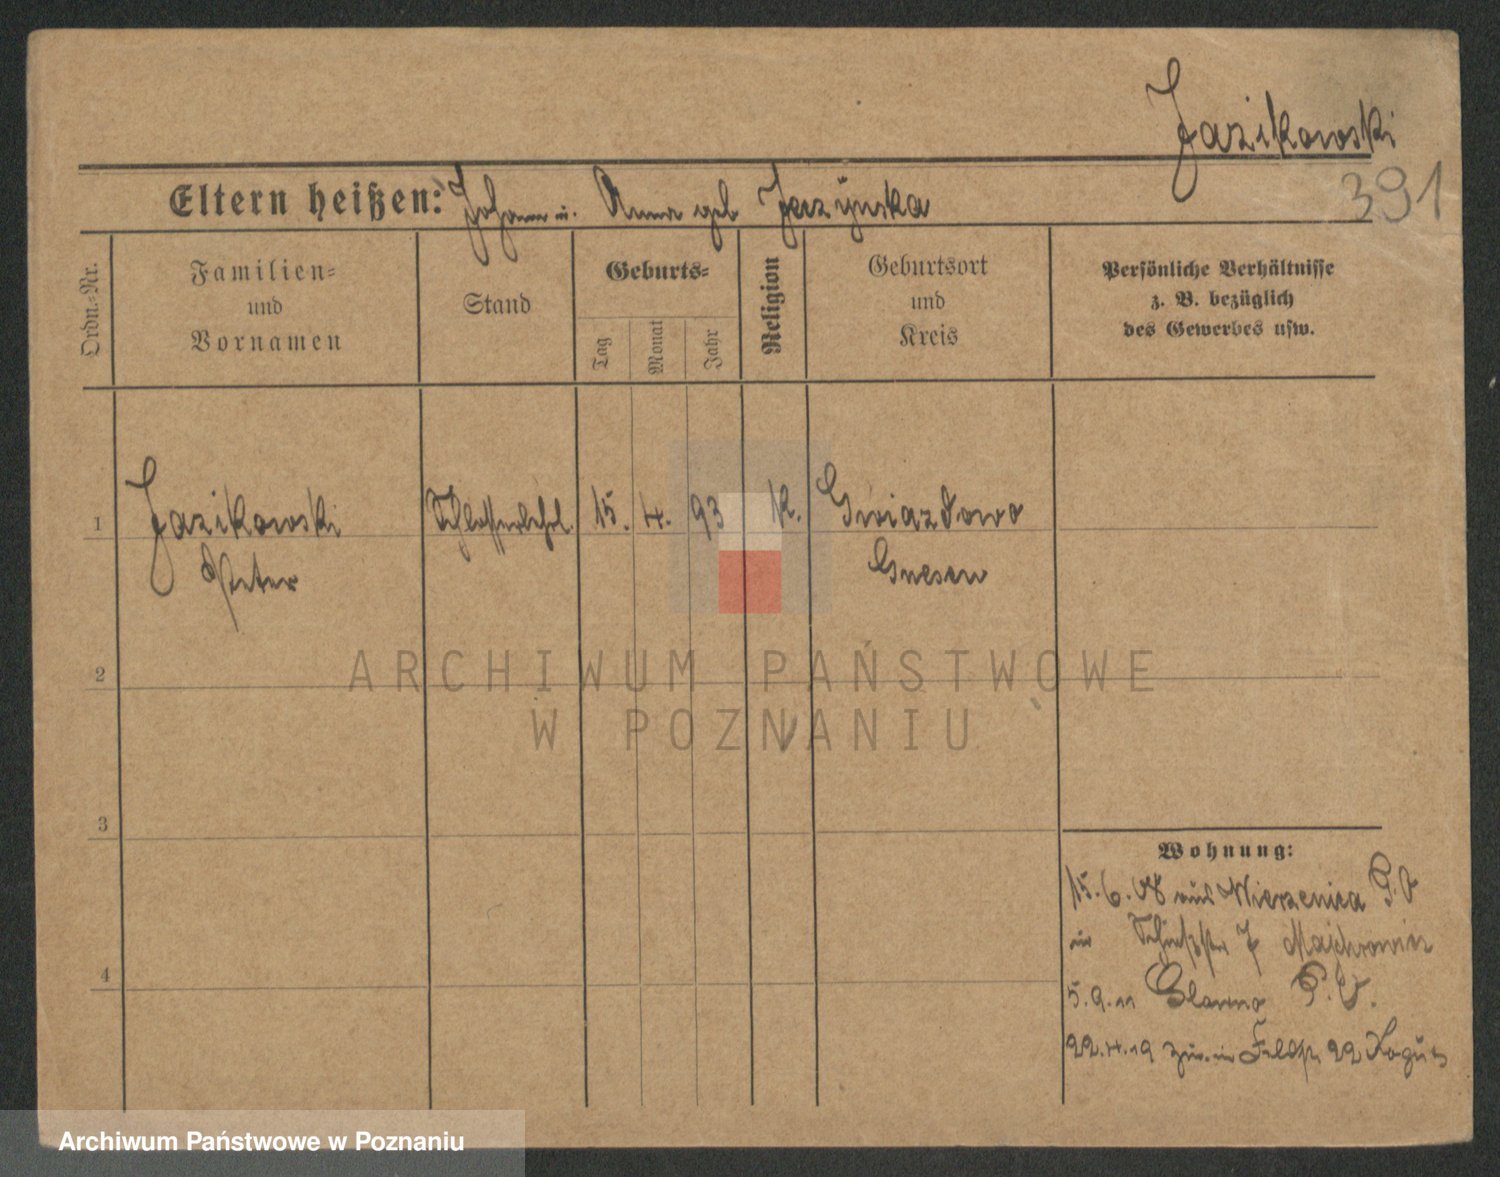 Jazikowski
391
Eltern heißen: Johann u. Anna geb Jerzynska
Ordn.-Nr.
Familien-
und
Vornamen
Stand
Geburts-
Tag
Monat
Jahr
Religion
Geburtsort
und
Kreis
Persönliche Verhältnisse
z. B. bezüglich
des Gewerbes usw.
1
Jazikowski
Peter
Schlosserlehrl.
15.
4.
93
K.
Gwiazdowo
Gnesen
2
3
4
ARCHIWUM PAŃSTWOWE
W POZNANIU
Wohnung:
15.6.08 aus Wierzenica P.O
in 7 Majchrowicz
5.9.11 Glowno P.O.
22.4.19 zur. in Feldstr 22
Archiwum Państwowe w Poznaniu